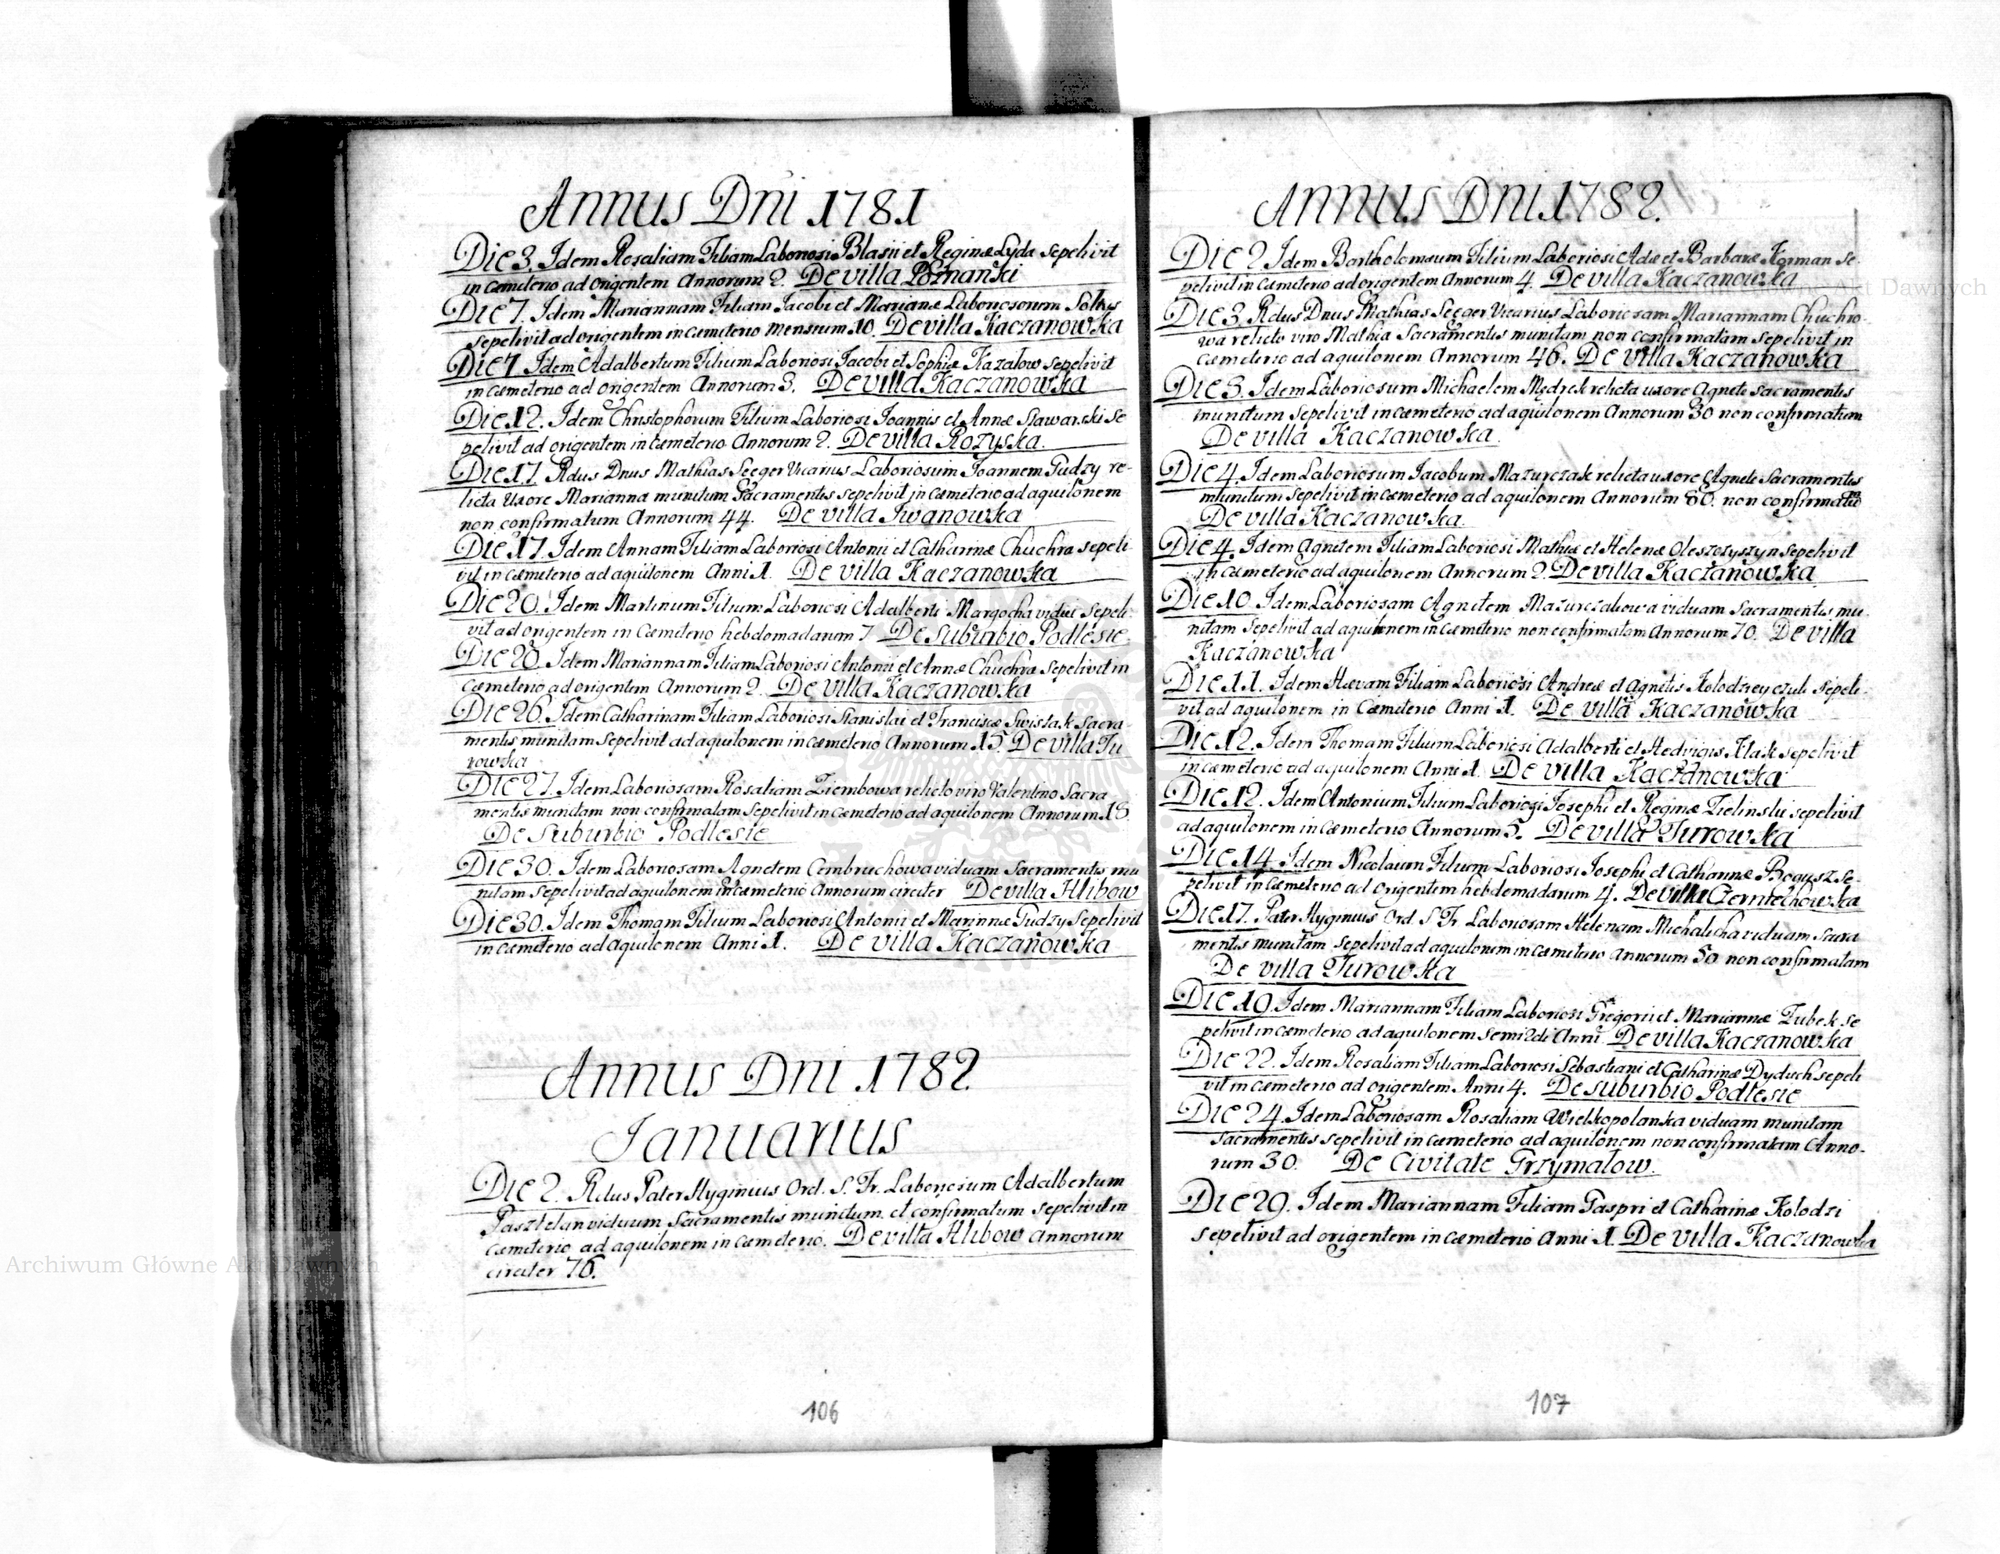 Annus Dni 1781
Die 3. Idem Rosaliam Filiam Laboriosi Blasii et Reginæ Lyda Sepelivit
in Cæmeterio ad Origentem Annorum 2. De villa Poznanki
Die 7. Idem Mariannam Filiam Jacobi et Mariannæ Laboriosorum Soltys
Sepelivit ad origentem in Cæmeterio Mensium 10. De villa Kaczanowka
Die 7. Idem Adalbertum Filium Laboriosi Jacobi et Sophiæ Kazalow Sepelivit
in Cæmeterio ad origentem Annorum 3. De villa Kaczanowka
Die 12. Idem Christophorum Filium Laboriosi Joannis et Annæ Slawarski Se
pelivit ad origentem in Cæmeterio Annorum 2. De villa Rozyska.
Die 17 Rdus Dnus Mathias Seeger Vicarius Laboriosum Joannem Gudzy re-
licta Uxore Marianna munitum Sacramentis sepelivit in Cæmeterio ad aquilonem
non confirmatum Annorum 44. De villa Iwanowka
Die 17. Idem Annam Filiam Laboriosi Antonii et Catharinæ Chuchra sepeli
vit in Cæmeterio ad aquilonem Anni 1. De villa Kaczanowka
Die 20. Idem Martinum Filium Laboriosi Adalberti Margocha vidui Sepeli
vit ad origentem in Cæmeterio hebdomadarum 7 De Suburbio Podlesie
Die 20. Idem Mariannam Filiam Laboriosi Antonii et Annæ Chuchra Sepelivit in
Cæmeterio ad origentem Annorum 2. De villa Kaczanowka
Die 26. Idem Catharinam Filiam Laboriosi Stanislai et Franciscæ Swistak Sacra
mentis munitam Sepelivit ad aquilonem in cæmeterio Annorum 15. De villa Tu
rowka
Die 27. Idem Laboriosam Rosaliam Ziembowa relicto viro Valentino Sacra
mentis munitam non confirmatam Sepelivit in Cæmeterio ad aquilonem Annorum 18.
De Suburbio Podlesie
Die 30. Idem Laboriosam Agnetem Cembruchowa viduam Sacramentis mu
nitam Sepelivit ad aquilonem in Cæmeterio Annorum circiter De villa Hlibow
Die 30. Idem Thomam Filium Laboriosi Antonii et Mariannæ Gudzy Sepelivit
in Cæmeterio ad aquilonem Anni 1. De villa Kaczanowka
Annus Dni 1782
Januarius
Die 2. Rdus Pater Hyginius Ord. S. Fr. Laboriosum Adalbertum
Pasztelan viduum Sacramentis munitum et confirmatum Sepelivit in
Cæmeterio ad aquilonem in Cæmeterio. De villa Hlibow Annorum
circiter 76.
106
Annus Dni 1782.
Die 2 Idem Bartholomæum Filium Laboriosi Adæ et Barbaræ Korman Se-
pelivit in Cæmeterio ad origentem Annorum 4. De villa Kaczanowka
Die 3 Rdus Dnus Mathias Seeger Vicarius Laboriosam Mariannam Chuchro-
wa relicto viro Mathia Sacramentis munitam non confirmatam sepelivit in
Cæmeterio ad aquilonem Annorum 46. De villa Kaczanowka
Die 3. Idem Laboriosum Michaelem Mędrek relicta uxore Agnete Sacramentis
munitum Sepelivit in Cæmeterio ad aquilonem Annorum 30 non confirmatum
De villa Kaczanowka.
Die 4. Idem Laboriosum Jacobum Mazurczak relicta uxore Agnete Sacramentis
munitum Sepelivit in Cæmeterio ad aquilonem Annorum 80. non confirmatum
De villa Kaczanowka.
Die 4. Idem Agnetem Filiam Laboriosi Mathiæ et Helenæ Oleszczyszyn Sepelivit
in Cæmeterio ad aquilonem Annorum 2. De villa Kaczanowka
Die 10. Idem Laboriosam Agnetem Mazurczakowa viduam Sacramentis mu
nitam Sepelivit ad aquilonem in Cæmeterio non confirmatam Annorum 70. De villa
Kaczanowka
Die 11. Idem Hævam Filiam Laboriosi Andreæ et Agnetis Kolodzieyczyk Sepeli-
vit ad aquilonem in Cæmeterio Anni 1. De villa Kaczanowka
Die 12. Idem Thomam Filium Laboriosi Adalberti et Hedvigis Flak sepelivit
in Cæmeterio ad aquilonem Anni 1. De villa Kaczanowka
Die 12. Idem Antonium Filium Laboriosi Josephi et Reginæ Zielinski sepelivit
ad aquilonem in Cæmeterio Annorum 5. De villa Turowka
Die 14 Idem Nicolaum Filium Laboriosi Josephi et Catharinæ Bogusz Se-
pelivit in Cæmeterio ad origentem hebdomadarum 4. De villa Czerniechowka
Die 17. Pater Hyginius Ord S Fr Laboriosam Helenam Michalicha viduam Sacra
mentis munitam sepelivit ad aquilonem in Cæmeterio Annorum 50 non confirmatam
De villa Turowka
Die 19. Idem Mariannam Filiam Laboriosi Gregorii et Mariannæ Zubek Se
pelivit in Cæmeterio ad aquilonem Semi 2di Anni De villa Kaczanowka
Die 22. Idem Rosaliam Filiam Laboriosi Sebastiani et Catharinæ Dyduch sepeli
vit in Cæmeterio ad origentem Anni 4. De Suburbio Podlesie
Die 24. Idem Laboriosam Rosaliam Wielkopolanka viduam munitam
Sacramentis Sepelivit in Cæmeterio ad aquilonem non confirmatam Anno-
rum 30. De Civitate Grzymałow.
Die 29. Idem Mariannam Filiam Gaspri et Catharinæ Kolodzi
sepelivit ad origentem in Cæmeterio Anni 1. De villa Kaczanowka
107
Archiwum Główne Akt Dawnych